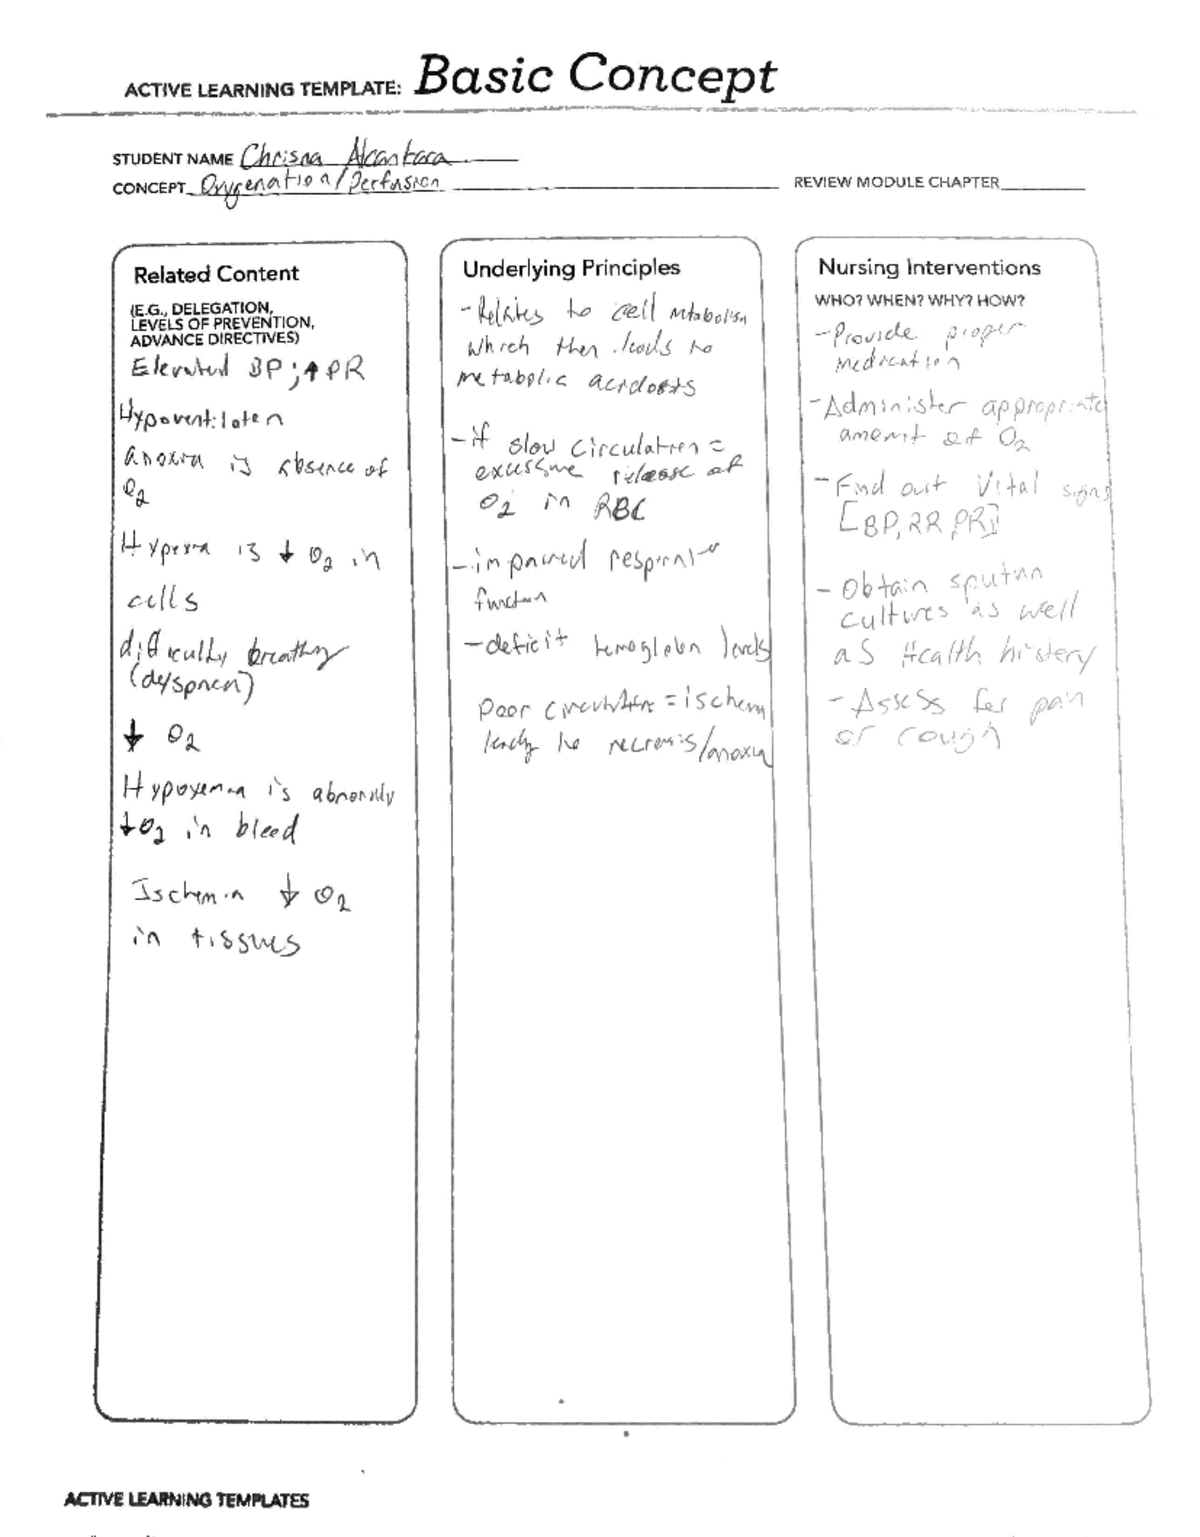 ACTIVE LEARNING TEMPLATE: Basic Concept
STUDENT NAME Chrisna Alcantara
CONCEPT Oxygenation/Perfusion
REVIEW MODULE CHAPTER
Related Content
(E.G., DELEGATION,
LEVELS OF PREVENTION,
ADVANCE DIRECTIVES)
Elevated BP; ↑ PR
Hypoventilaten
anoxia is absence of
O2
Hypoxia is ↓ O2 in
cells
difficulty breathing
(dyspnea)
↓ O2
Hypoxemia is abnormally
↓O2 in blood
Ischemia ↓ O2
in tissues
Underlying Principles
-Relates to cell mtabolism
which then leads to
metabolic acidosis
-if slow circulation =
excessive release of
O2 in RBC
-impaired respirator
function
-deficit hemoglobin levels
poor circulation = ischemia
leads to necrosis/anoxia
Nursing Interventions
WHO? WHEN? WHY? HOW?
-Provide proper
medication
-Administer appropriate
amount of O2
-Find out Vital signs
[BP, RR, PR]
- Obtain sputum
cultures as well
as Health history
- Assess for pain
or cough
ACTIVE LEARNING TEMPLATES